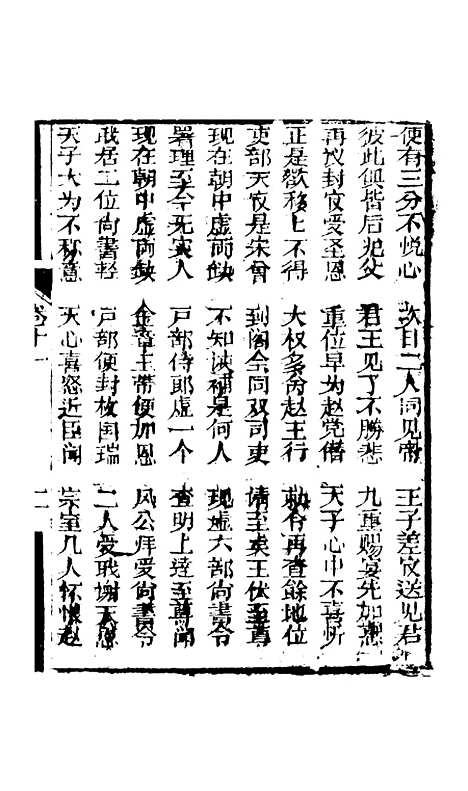 便有三分不悦心 次日二人同见帝 王子差官送见君
彼此俱偕后犯父 君王见了不勝悲 九重赐宴先加恩
再议封官受圣恩 重位早为赵党僭 天子心中不喜忻
正是欲移上不得 大权多向赵王行 敕令再查餘地位
吏部天官是宋曾 到阁会同双司吏 请至奏王伏至尊
现在朝中虚而缺 不知谈補是何人 现虚六部尚書令
署理至今无实人 户部侍郎虚一个 查明上達至尊闻
现在朝中虚而缺 金章玉带便加恩 风公拜爱尚書令
武居工位尚書轻 户部便封枚国瑞 二人受职谢天恩
天子大为不称意 天心喜怒近臣闻 宗室几人怀恨赵
卷十一 二